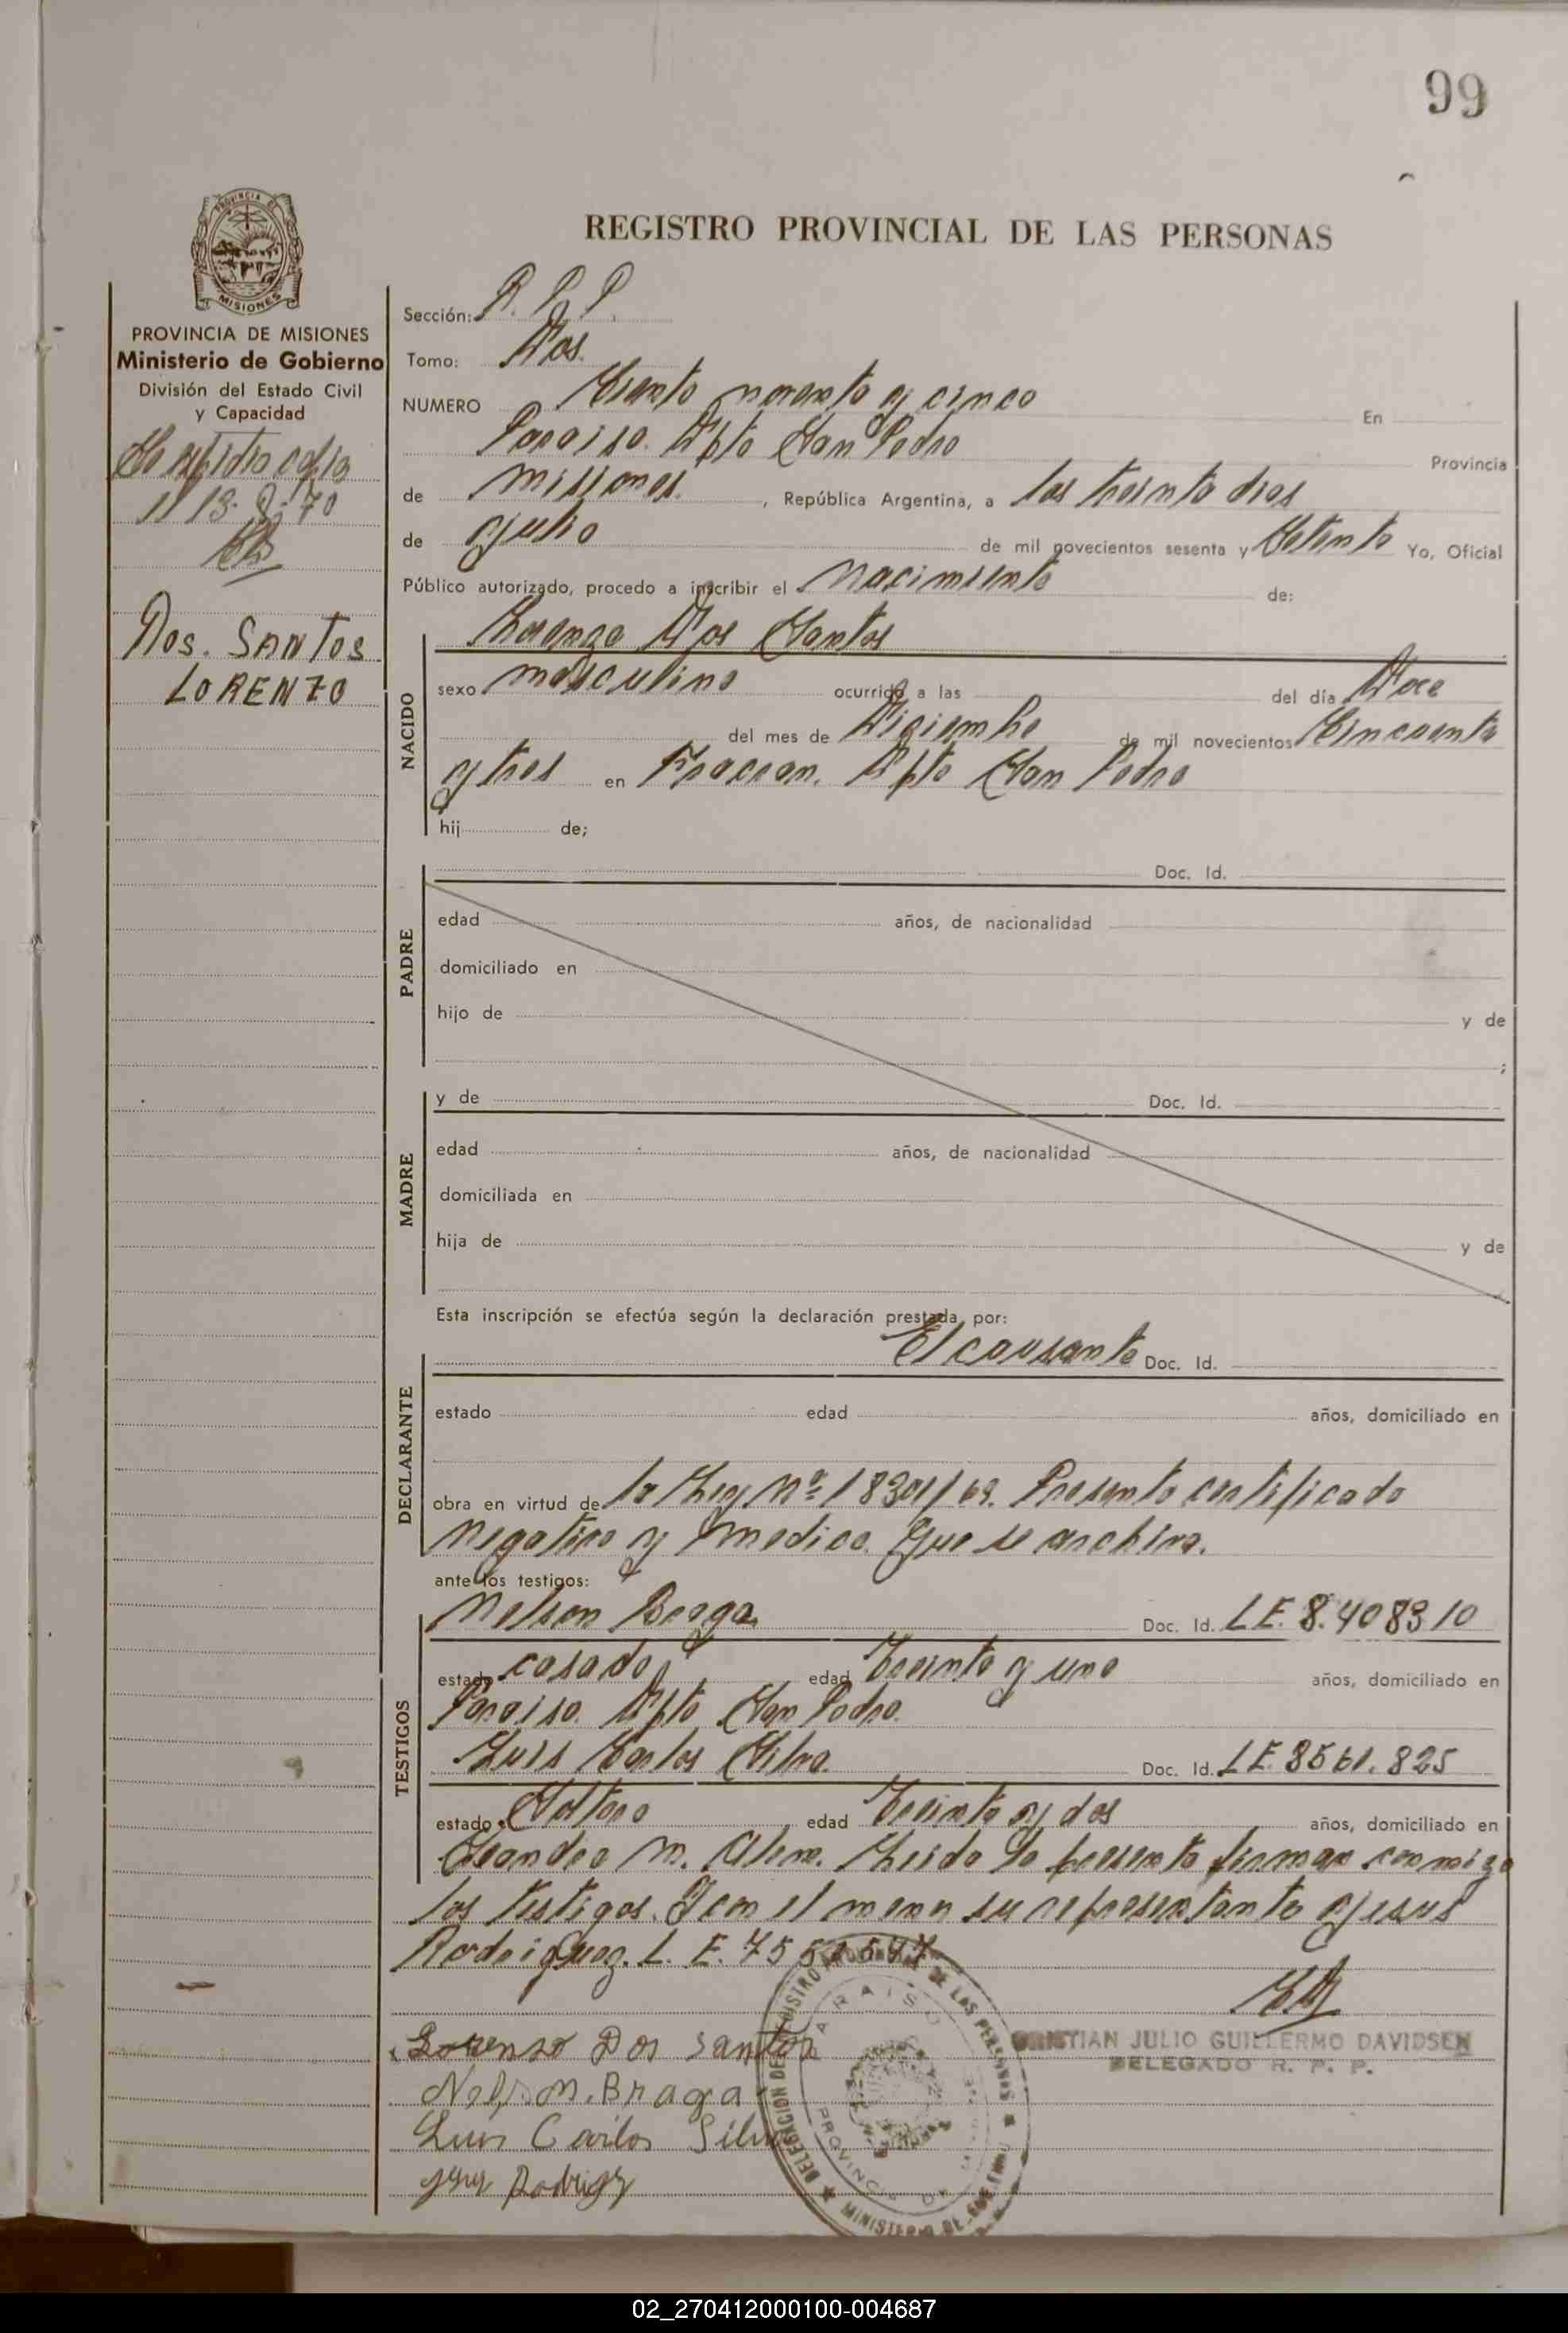 99
REGISTRO PROVINCIAL DE LAS PERSONAS
PROVINCIA DE
MISIONES
PROVINCIA DE MISIONES
Ministerio de Gobierno
División del Estado Civil
y Capacidad
copia
70
Dos. SANTOS
LORENZO
Sección: R. P. P.
Tomo: Dos.
NUMERO Ciento noventa y cinco En
Paraiso. Dpto San Pedro Provincia
de Misiones. , República Argentina, a los treinta dias
de Julio de mil novecientos sesenta y Setenta Yo, Oficial
Público autorizado, procedo a inscribir el Nacimiento de:
NACIDO
Lorenzo Dos Santos
sexo masculino ocurrido a las del día Doce
del mes de Diciembre de mil novecientos Cincuenta
y tres en Fracran. Dpto San Pedro
hij de;
PADRE
Doc. Id.
edad años, de nacionalidad
domiciliado en
hijo de y de
;
MADRE
y de Doc. Id.
edad años, de nacionalidad
domiciliada en
hija de y de
Esta inscripción se efectúa según la declaración prestada por:
DECLARANTE
El causante Doc. Id.
estado edad años, domiciliado en
obra en virtud de la Ley Nº 18 69. Presento certificado
negativo y medico que se archiva.
ante los testigos:
TESTIGOS
Nelson Braga Doc. Id. L E. 8.408310
estado casado edad Treinta y uno años, domiciliado en
Paraiso. Dpto San Pedro.
Luis Carlos Silva. Doc. Id. L E. 8561.825
estado Soltero edad Treinta y dos años, domiciliado en
Leandro N. Alem. Leida la presente firman conmigo
los testigos. y con el menor su representante Jesus
Rodriguez. L. E. 755
Lorenso Dos Santos
Nelson. Braga
Luis Carlos Silva
CRISTIAN JULIO GUILLERMO DAVIDSEN
DELEGADO R. P. P.
DELEGACION DE REGISTRO PROVINCIAL DE LAS PERSONAS
PARAISO
PROVINCIA
MINISTERIO DE GOBIERNO
02_270412000100-004687